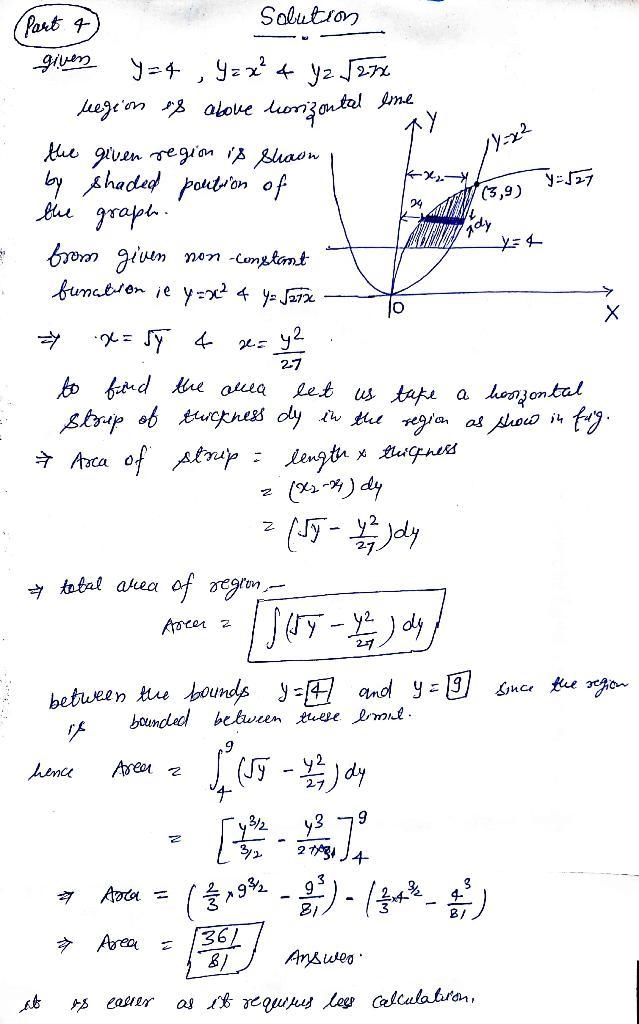 Part 4
Solution
given y=4 , y=x² & y= √27x
region is above horizontal line
the given region is shaon
by shaded portion of
the graph.
Y
y=x²
x₂
(3,9)
y=√27
x₁
dy
y=4
O
X
from given non-constant
function ie y=x² & y=√27x
⇒ x = √y & x= y²/27
to find the area let us take a horizontal
strip of thickness dy in the region as show in fig.
⇒ Area of strip = length × thickness
= (x₂-x₁) dy
= (√y - y²/27) dy
⇒ total area of region,—
Area = ∫(√y - y²/27) dy
between the bounds y=4 and y=9 since the region
is bounded between these limit.
hence Area = ∫₄⁹ (√y - y²/27) dy
= [y^3/2 / 3/2 - y³ / 27×3]₄⁹
⇒ Area = (2/3 × 9^3/2 - 9³/81) - (2/3 × 4^3/2 - 4³/81)
⇒ Area = 361/81 Answer.
it is easier as it requires less calculation.